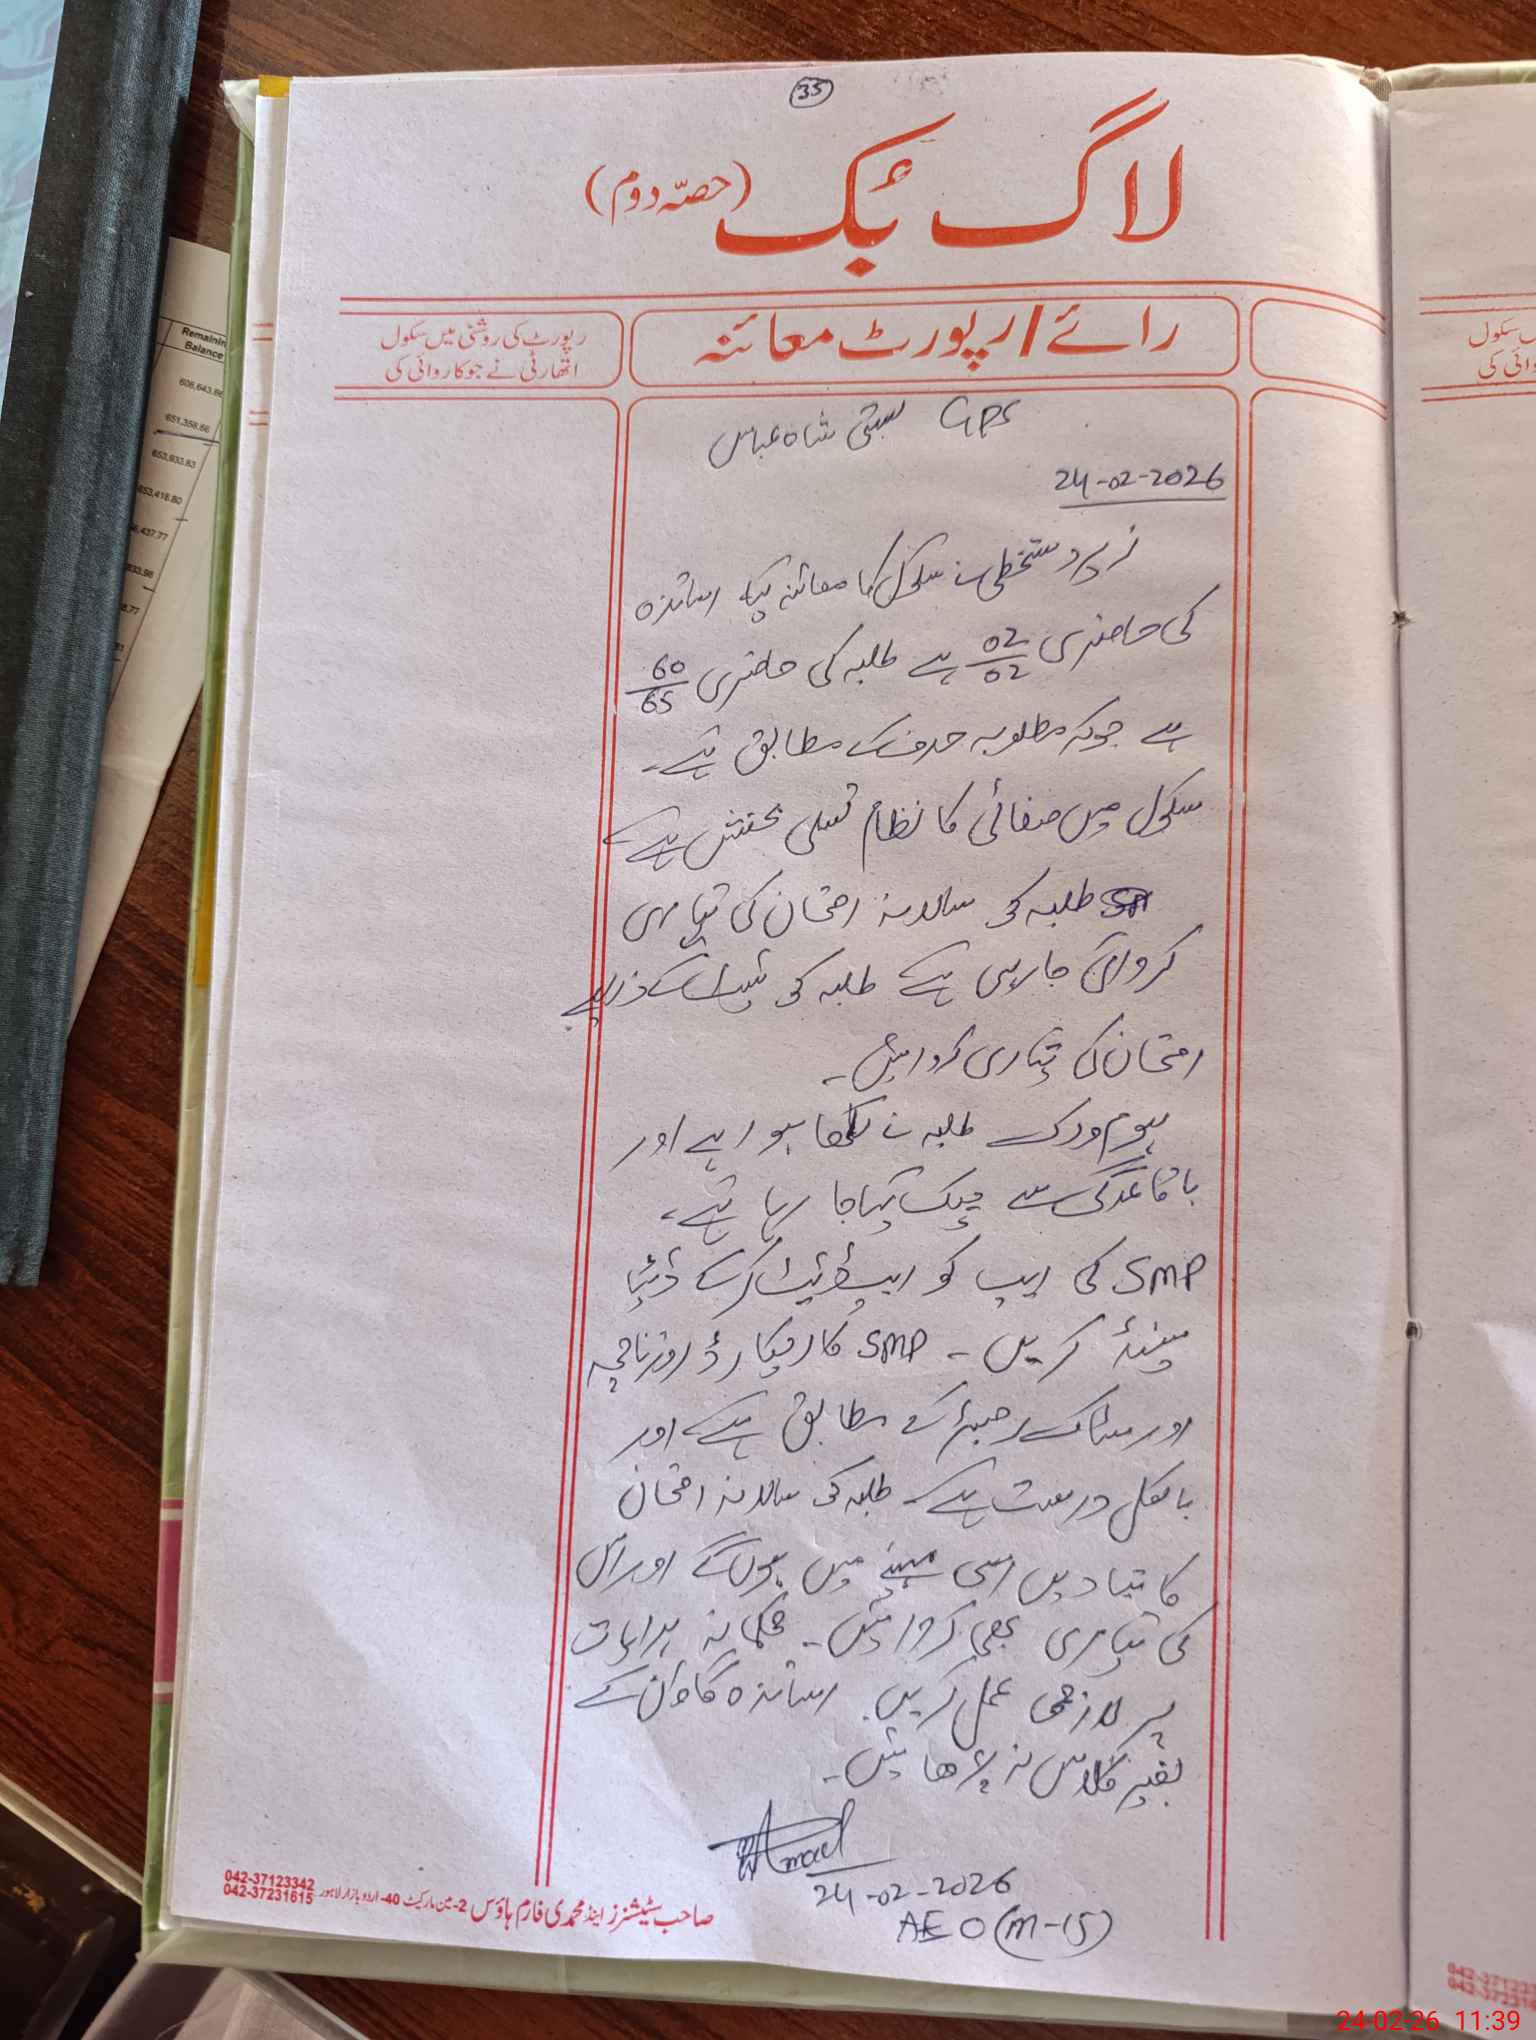 35
لاگ بُک (حصّہ دوم)
رائے/رپورٹ معائنہ
رپورٹ کی روشنی میں سکول
اتھارٹی نے جو کاروائی کی
GPS بستی شاہ عباس
24-02-2026
زیر دستخطی نے سکول کا معائنہ کیا۔ اساتذہ
کی حاضری 02/02 ہے طلبہ کی حاضری 60/65
ہے جوکہ مطلوبہ حدف کے مطابق ہے۔
سکول میں صفائی کا نظام تسلی بخش ہے
طلبہ کو سالانہ امتحان کی تیاری
کروائی جارہی ہے طلبہ کو ٹیسٹ کے ذریعے
امتحان کی تیاری کروائیں۔
ہوم ورک طلبہ نے لکھا ہوا ہے اور
باقاعدگی سے چیک کیا جا رہا ہے۔
SMP کی ایپ کو اپ ڈیٹ کرکے ڈیٹا
سینڈ کریں۔ SMP کا ریکارڈ روزنامچہ
اور سٹاک رجسٹر کے مطابق ہے اور
بالکل درست ہے۔ طلبہ کو سالانہ امتحان
کا اسی مہینے میں ہوں گے اور اس
کی تیاری بھی کروائیں۔ محکمانہ ہدایات
پر لازمی عمل کریں۔ اساتذہ گاؤن کے
بغیر کلاس نہ پڑھائیں۔
24-02-2026
AEO (M-15)
صاحب سٹیشنرز اینڈ محمدی فارم ہاؤس 2-مین مارکیٹ 40-اردو بازار لاہور
042-37123342
042-37231615
Remaining
Balance
608,643.66
651,358.66
653,933.83
653,418.80
24-02-26 11:39